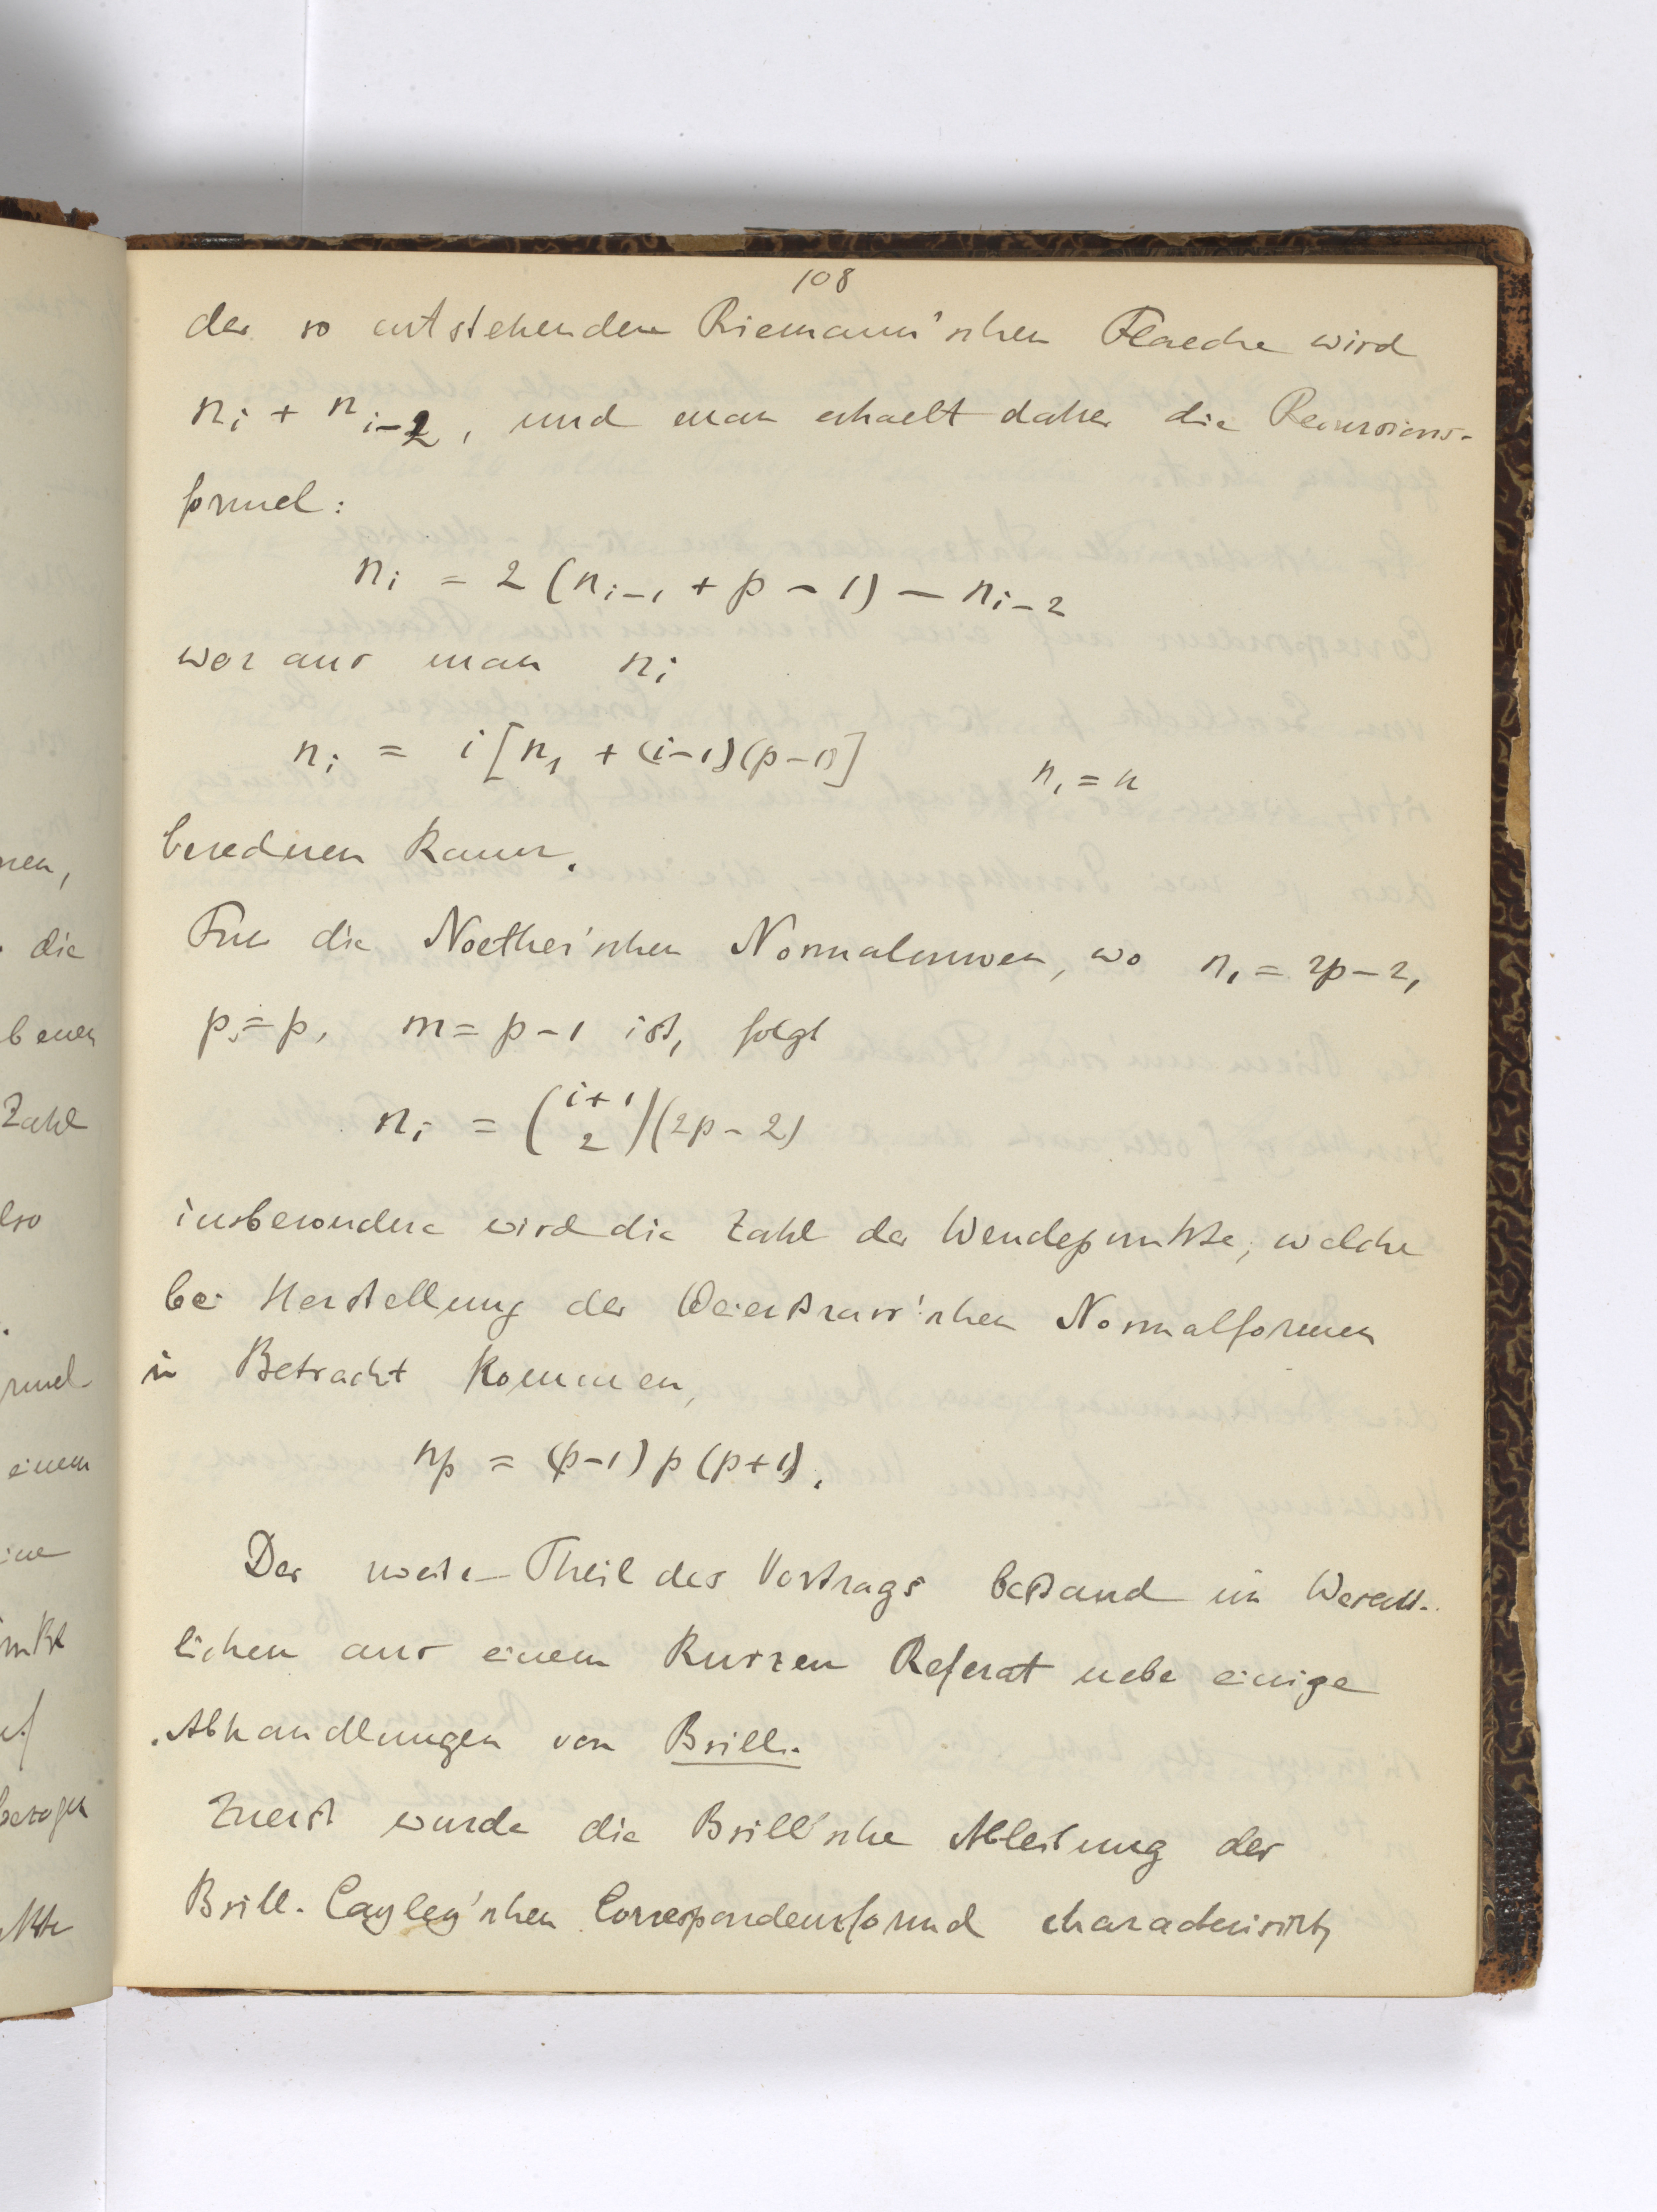 108
der so entstehenden Riemann'schen Flaeche wird
n_i + n_{i-2}, und man erhaelt daher die Recursions-
formel:
n_i = 2 (n_{i-1} + p - 1) - n_{i-2}
woraus man n_i
n_i = i [n_1 + (i-1)(p-1)] n_1 = n
berechnen kann.
Fuer die Noether'schen Normalcurven, wo n_1 = 2p-2,
p = p, m = p-1 ist, folgt
n_i = \binom{i+1}{2} (2p-2)
insbesondere wird die Zahl der Wendepunkte, welche
bei Herstellung der Weierstrass'schen Normalformen
in Betracht kommen,
n_p = (p-1) p (p+1).
Der zweite Theil des Vortrags bestand im Wesent-
lichen aus einem kurzen Referat uebe einige
Abhandlungen von Brill.
Zuerst wurde die Brill'sche Ableitung der
Brill-Cayley'schen Correspondenzformel characterisirt,
nen,
die
benen
Zahl
lso
rmel
einem
ine
inkt
bezogen